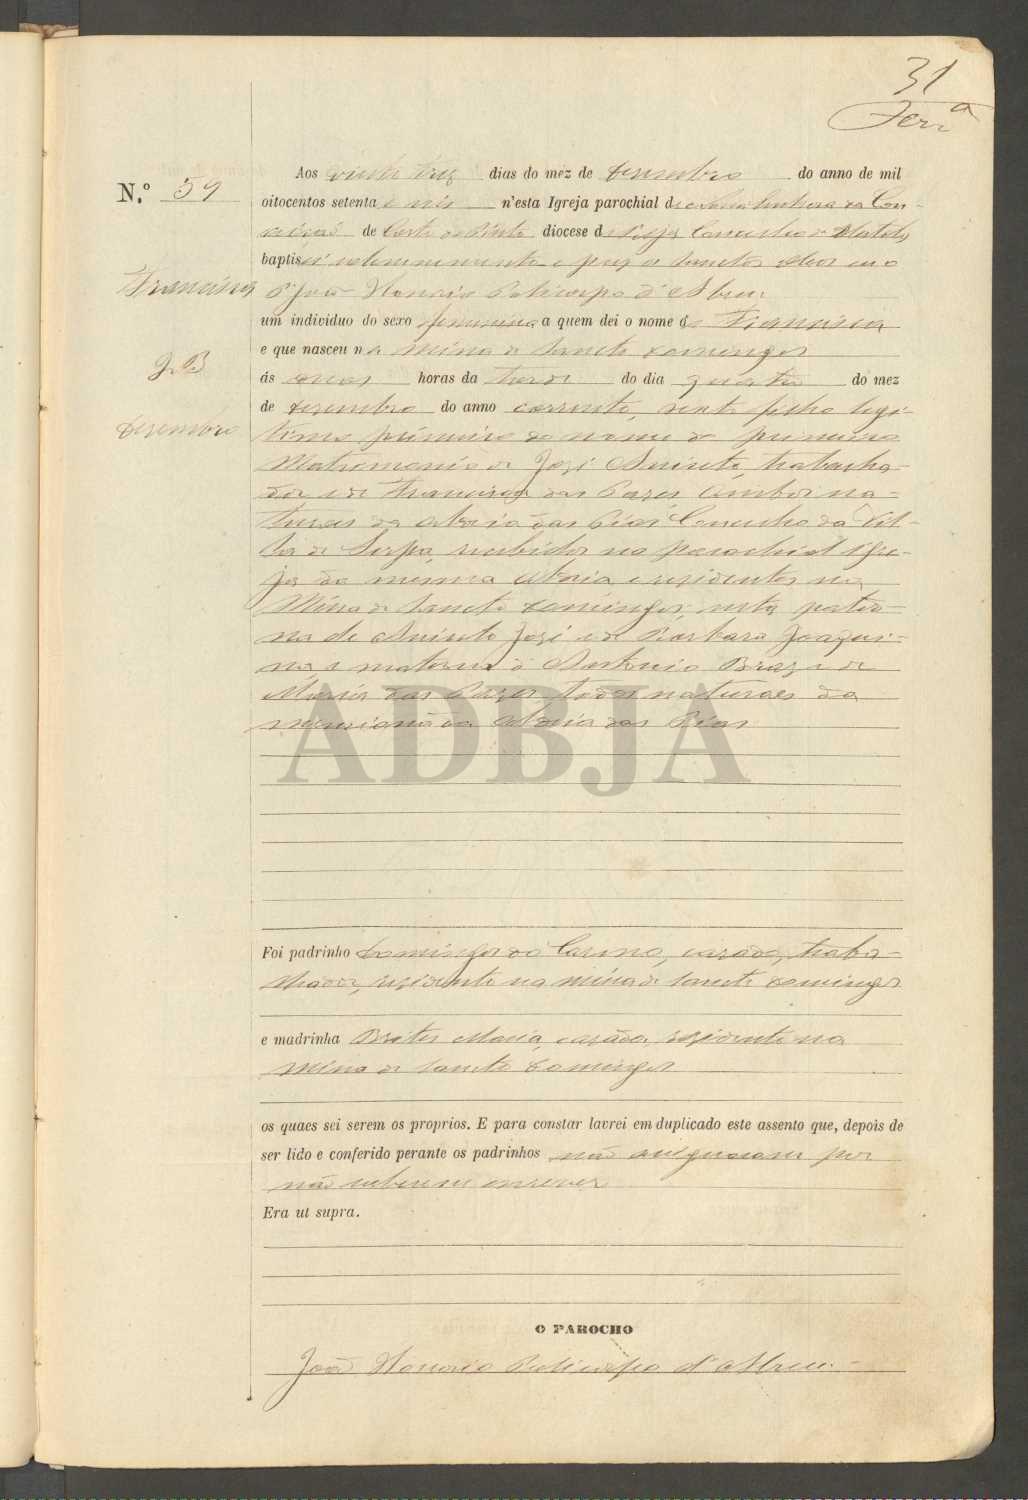 31
Ferra
N.º 59
Francisca
J. B
Dezembro
Aos vinte trez dias do mez de Dezembro do anno de mil
oitocentos setenta e seis n'esta Igreja parochial de Nossa Senhora da Con-
ceiçaõ de Corte do Pinto diocese de Beja Concelho de Mertola
baptisei solemnemente e puz os Sanctos Oleos eu o
P.e Joaõ Honorio Policarpo d'Abreu
um individuo do sexo femenino a quem dei o nome de Francisca
e que nasceu na Mina de Sancto Domingos
ás duas horas da tarde do dia quatro do mez
de Dezembro do anno corrente, sendo filha legi-
tima primeira do nome do primeiro
Matromonio de José Aniceto, trabalha-
dor e de Francisca das Pazes ambos na-
turaes da Aldeia das Pias Concelho da Vil-
la de Serpa, recebidos na parochial Igre-
ja da mesma Aldeia e residentes na
Mina de Sancto Domingos, neta pater-
na de Aniceto José e de Barbara Joaqui-
na e materna de Antonio Braz e de
Maria das Pazes todos naturaes da
mencionada Aldeia das Pias
ADBJA
Foi padrinho Domingos do Carmo, casado, traba-
lhador, rezidente na Mina de Sancto Domingos
e madrinha Brites Maria, casada, rezidente na
Mina de Sancto Domingos
os quaes sei serem os proprios. E para constar lavrei em duplicado este assento que, depois de
ser lido e conferido perante os padrinhos não assignaram por
não saberem escrever
Era ut supra.
O PAROCHO
Joaõ Honorio Policarpo d'Abreu